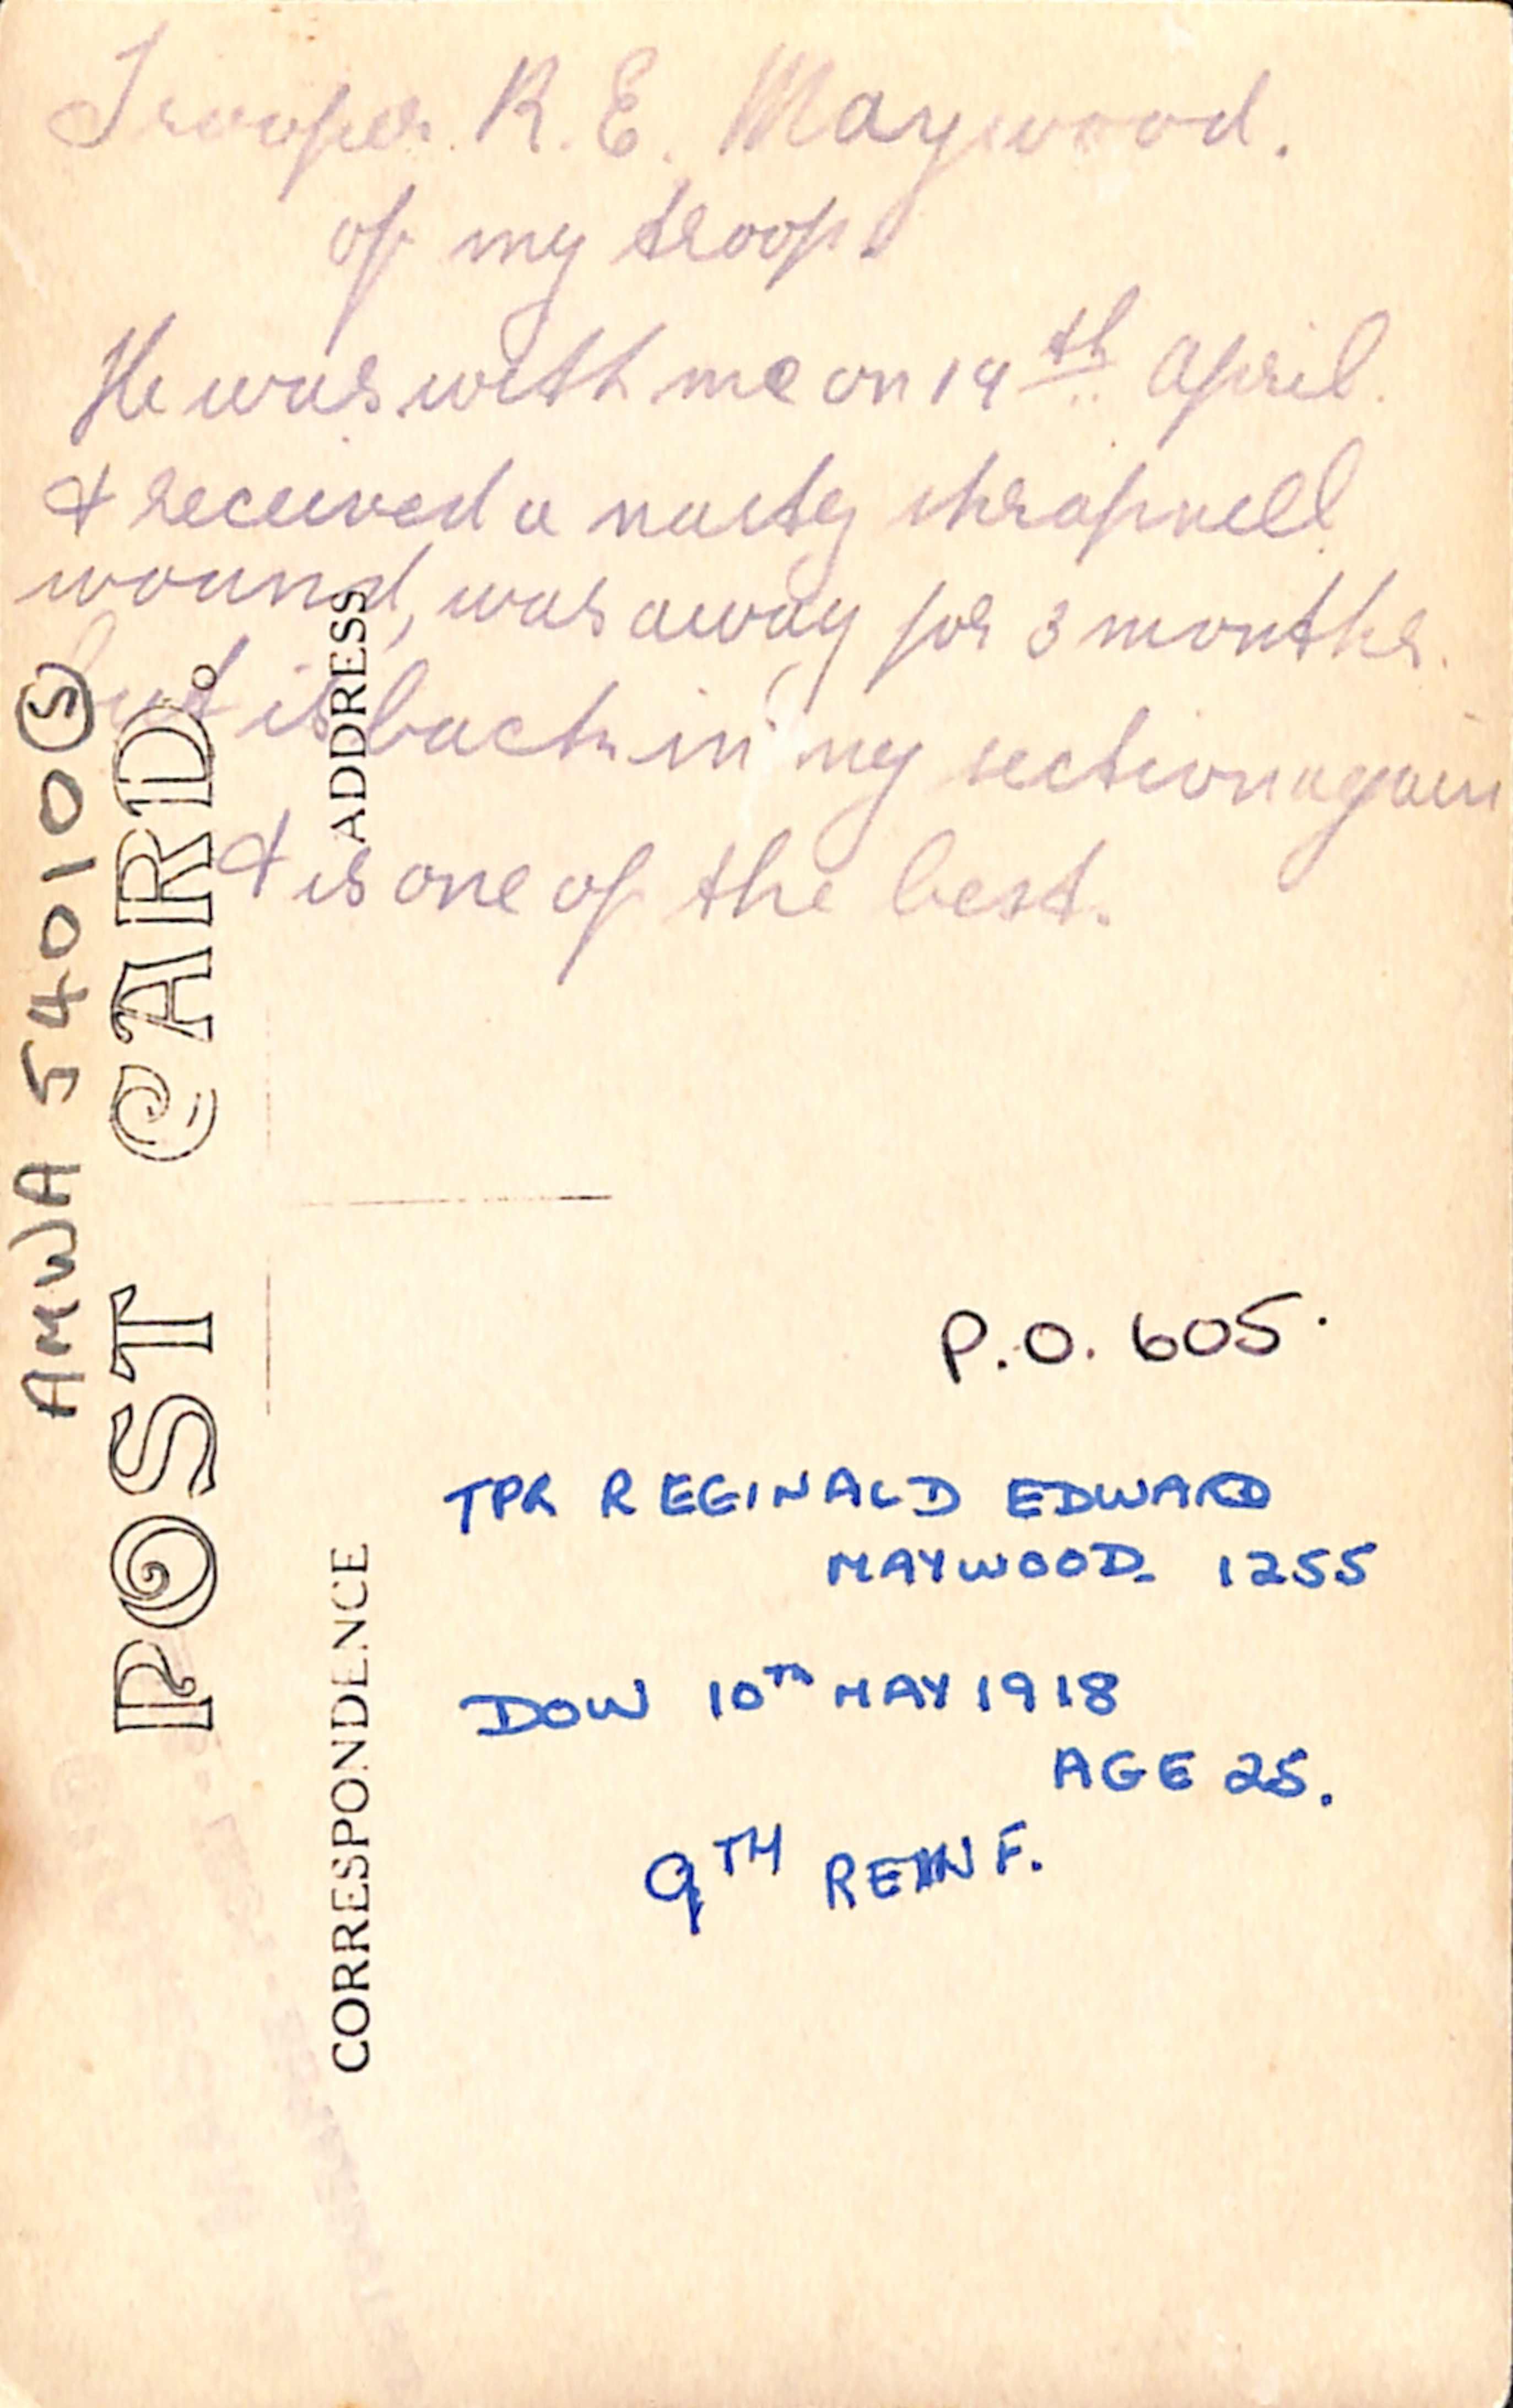 Trooper. R. E. Maywood.
of my troop.
He was with me on 19th April.
& received a nasty shrapnell
wound, was away for 3 months.
but is back in my section again
& is one of the best.
AMWA 54010 (S)
POST CARD.
ADDRESS
CORRESPONDENCE
P.O. 605.
TPR REGINALD EDWARD
MAYWOOD. 1255
DOW 10TH MAY 1918
AGE 25.
9TH REINF.